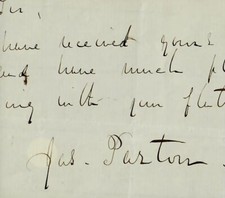 Sir,
have received yours
and have much pl
ing with your flat
Jas. Parton.